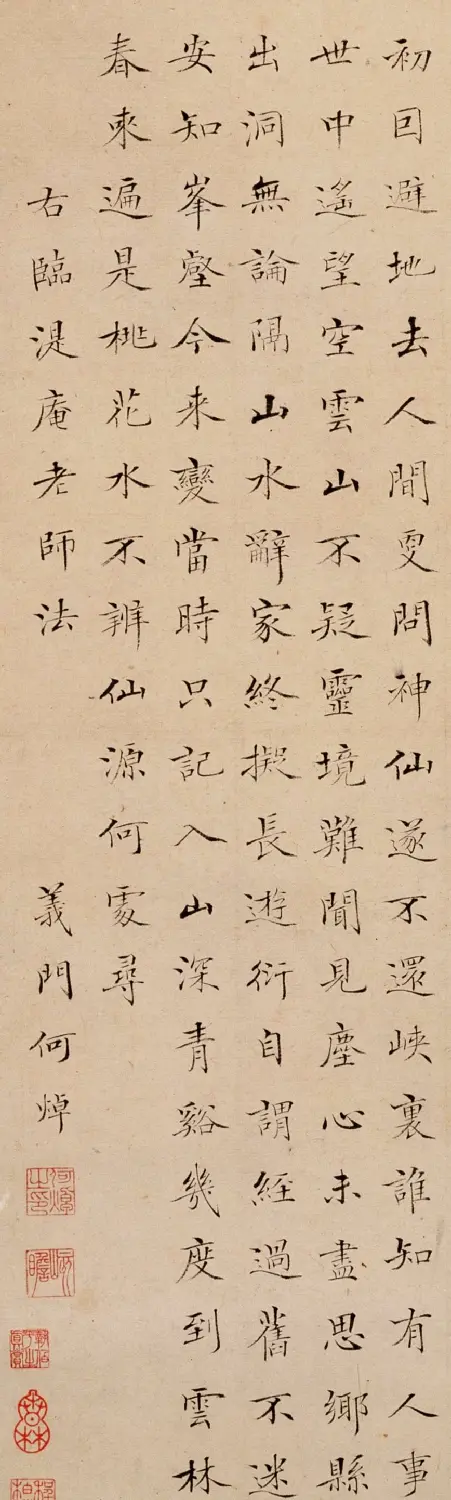 初囙避地去人間更問神仙遂不還峽裏誰知有人事
世中遙望空雲山不疑靈境難聞見塵心未盡思鄉縣
出洞無論隔山水辭家終擬長遊衍自謂經過舊不迷
安知峯壑今来變當時只記入山深青谿幾度到雲林
春來遍是桃花水不辨仙源何處尋
右臨湜庵老師法 義門何焯
何焯之印
屺瞻